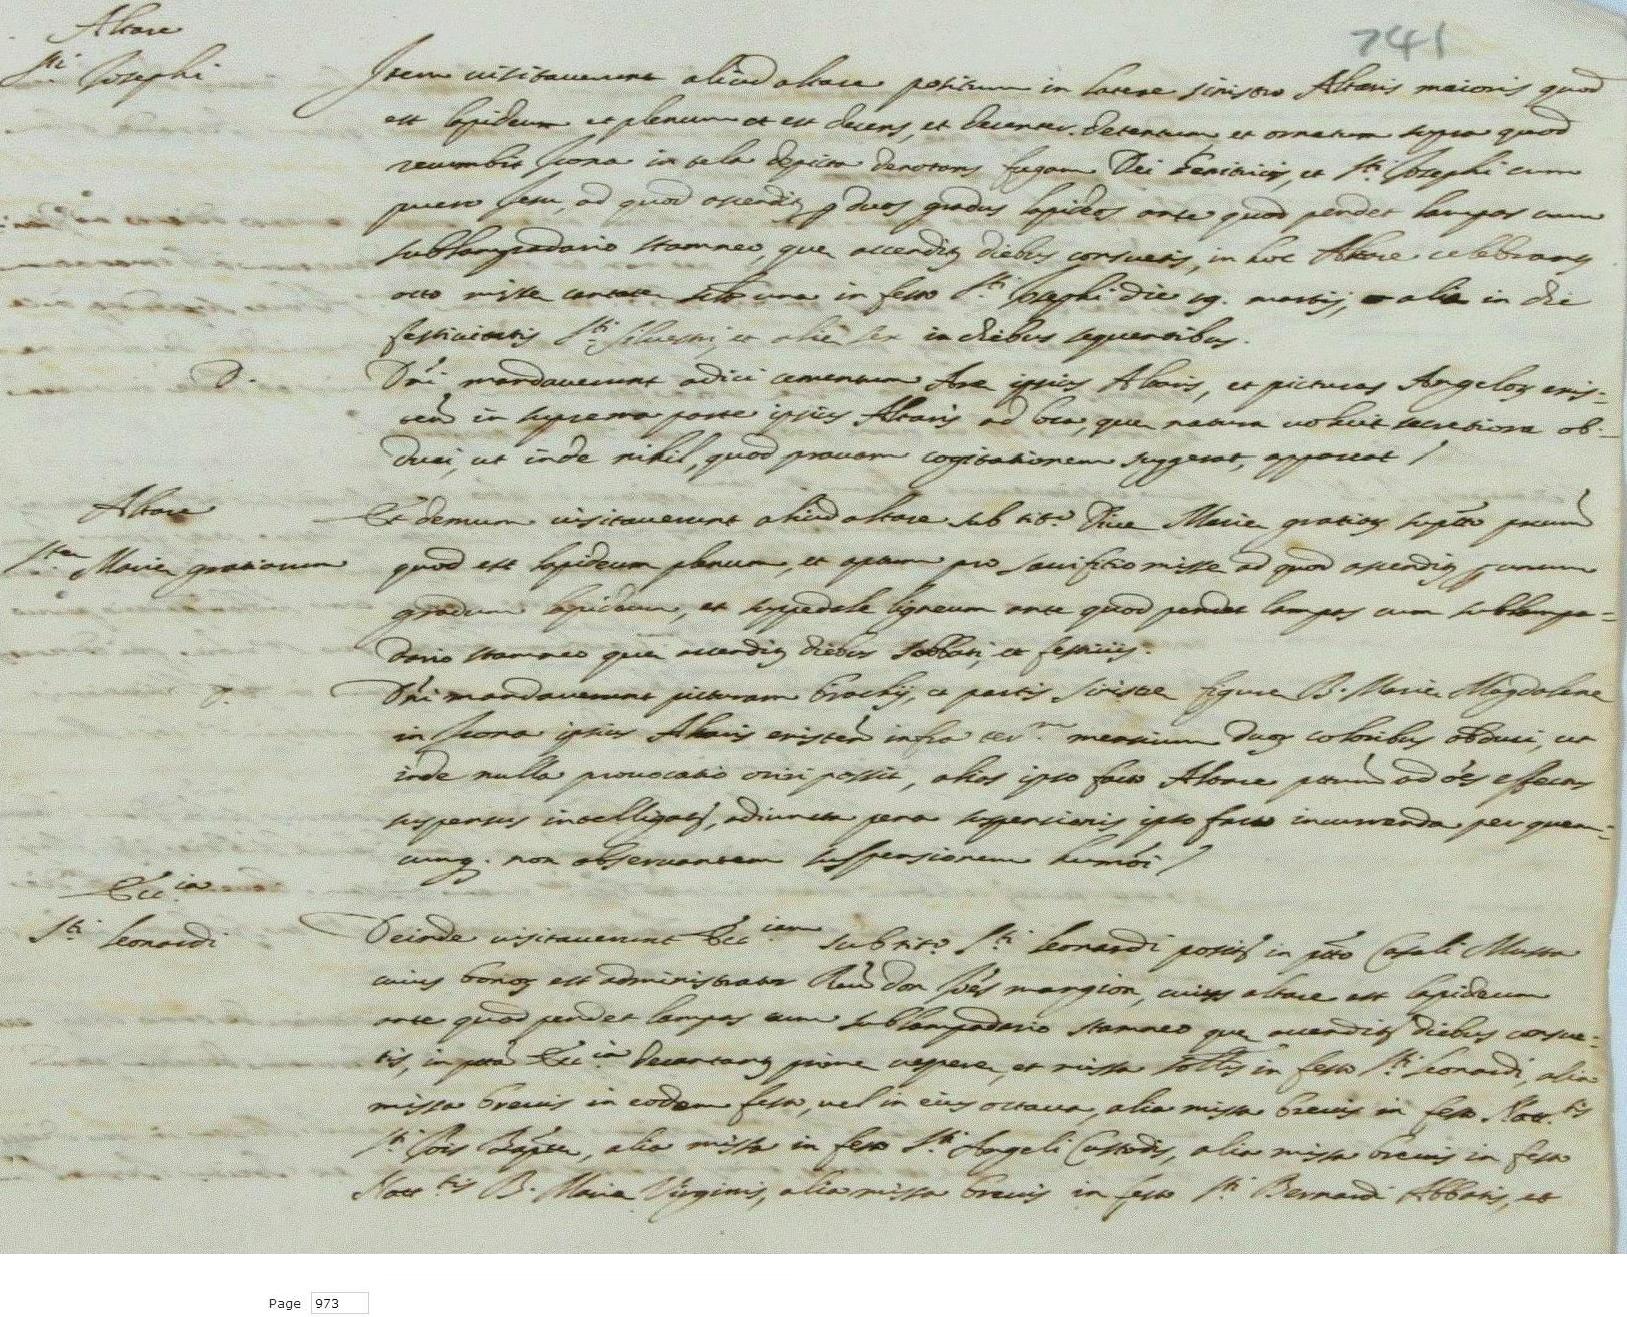 741
Altare
Sti Josephi
Item visitaverunt aliud altare positum in latere sinistro Altaris maioris quod
est lapideum et plenum et est decens, et decenter detentum, et ornatum supra quod
recumbit Icona in tela depicta denotans fugam Dei Genitricis, et Sti Josephi cum
puero Jesu, ad quod ascendit p duos gradus lapideos ante quod pendet lampas cum
sublampadario stamneo, que accendit diebus consuetis, in hoc Altare celebrant
octo misse cantate una in festo Sti Josephi die 19. martij, alia in die
festivitatis Sti Silvestri, et alie sex in diebus sequentibus.
D.
Dni mandaverunt adici cementum Are ipsius Altaris, et picturas Angelor exis=
ten in suprema parte ipsius Altaris ad loca, que natura voluit secretiora ob=
duci, ut inde nihil, quod pravam cogitationem suggerat, appareat /
Altare
Ste Marie gratiarum
Et demum visitaverunt aliud altare sub tito Dive Marie gratiar
quod est lapideum plenum, et aptum pro sacrifitio misse ad quod ascendit p unum
gradum lapideum, et suppedale ligneum ante quod pendet lampas cum sublampa=
dario stamneo que accendit diebus sabbati, et festivis.
D.
Dni mandaverunt picturam brachij, et partis sinistre figure B. Marie Magdalene
in Icona ipsius Altaris existen infra term mensium duor coloribus obduci, ut
inde nulla provocatio oriri possit, alias ipso facto Altare ptum ad oes effectus
suspensus intelligat, adiuncta pena suspensionis ipso facto incurrenda per quem=
cunq. non observantem suspensionem humoi /
Eccia
Sti Leonardi
Deinde visitaverunt Ecciam sub tito Sti Leonardi posit in ptto Casali Musta
cuius bonor est administrator Reu Don Joes mangion, cuius altare est lapideum
ante quod pendet lampas cum sublampadario stamneo que accendit diebus consue=
tis, in ptta Eccia decantant prime vespere, et missa in festo Sti Leonardi, alia
missa brevis in eodem festo, vel in eius octava, alia missa brevis in festo Natttis
Sti Jois Bapte, alia missa in festo Sti Angeli Custodis, alia missa brevis in festo
Natttis B. Marie Virginis, alia missa brevis in festo Sti Bernardi Abbatis, et
Page 973